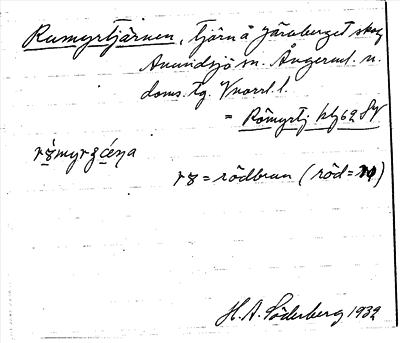 Rumyrtjärnen, tjärn å Järoberget skog
Anundsjö sn. Ångerml. n.
doms. tg. Vnorrl. l.
= Römyrtj kbl 62 SV
rʉ̀myrʂɕéɳa
rʉ = rödbrun (röd = rö)
H. A. Söderberg 1932